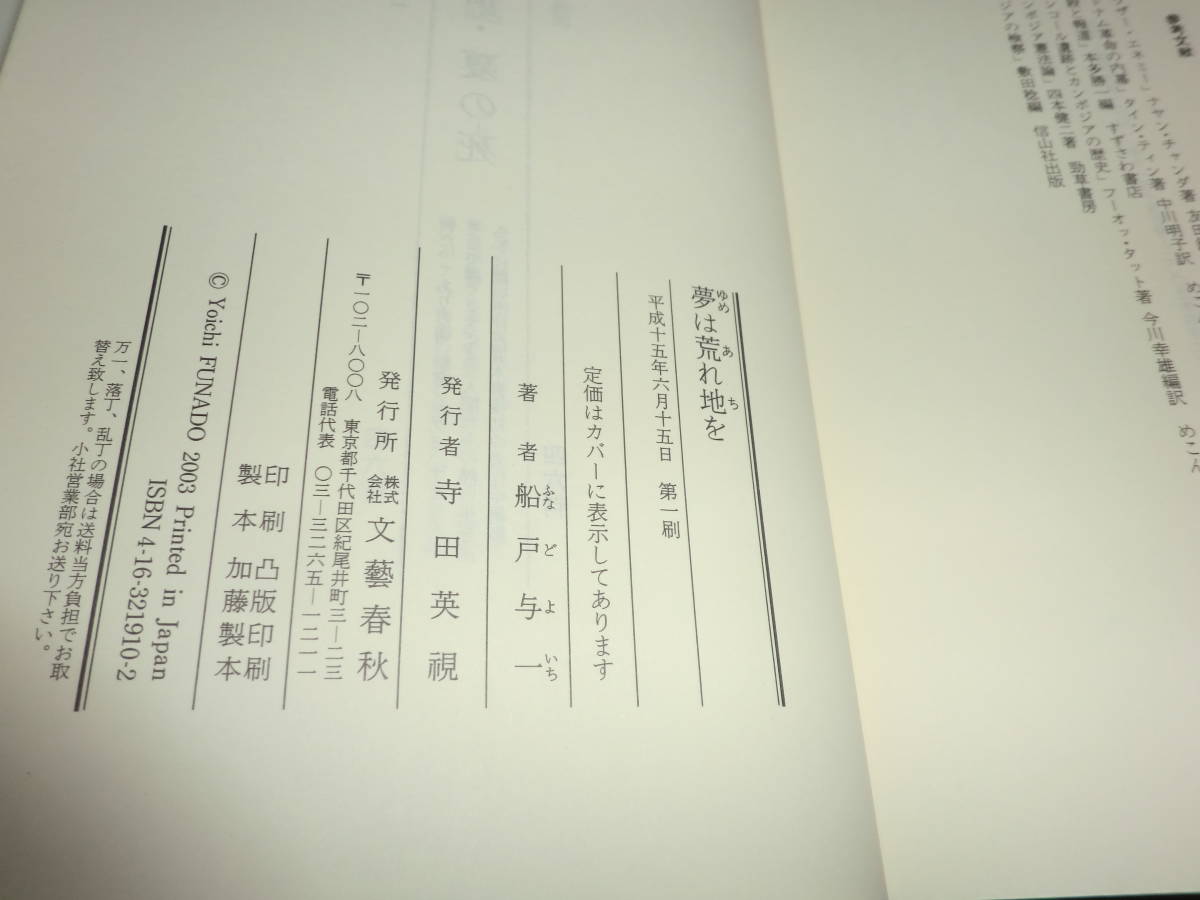 参考文献
ザー・エネミー」ナヤン・チャンダ著 友田
ナム革命の内幕」タイン・ティン著 中川明子訳 めこん
と報道」本多勝一編 すずさわ書店
ンコール遺跡とカンボジアの歴史」フーオッ・タット著 今川幸雄編訳 めこん
ンボジア憲法論」四本健二著 勁草書房
ジアの検察」敷田稔編 信山社出版
夢は荒れ地を
ゆめ あ ち
平成十五年六月十五日 第一刷
定価はカバーに表示してあります
著者 船戸与一
ふな ど よ いち
発行者 寺田英視
発行所 株式会社 文藝春秋
〒一〇二―八〇〇八 東京都千代田区紀尾井町三―二三
電話代表 〇三―三二六五―一二一一
印刷 凸版印刷
製本 加藤製本
© Yoichi FUNADO 2003 Printed in Japan
ISBN 4-16-321910-2
万一、落丁、乱丁の場合は送料当方負担でお取
替え致します。小社営業部宛お送り下さい。